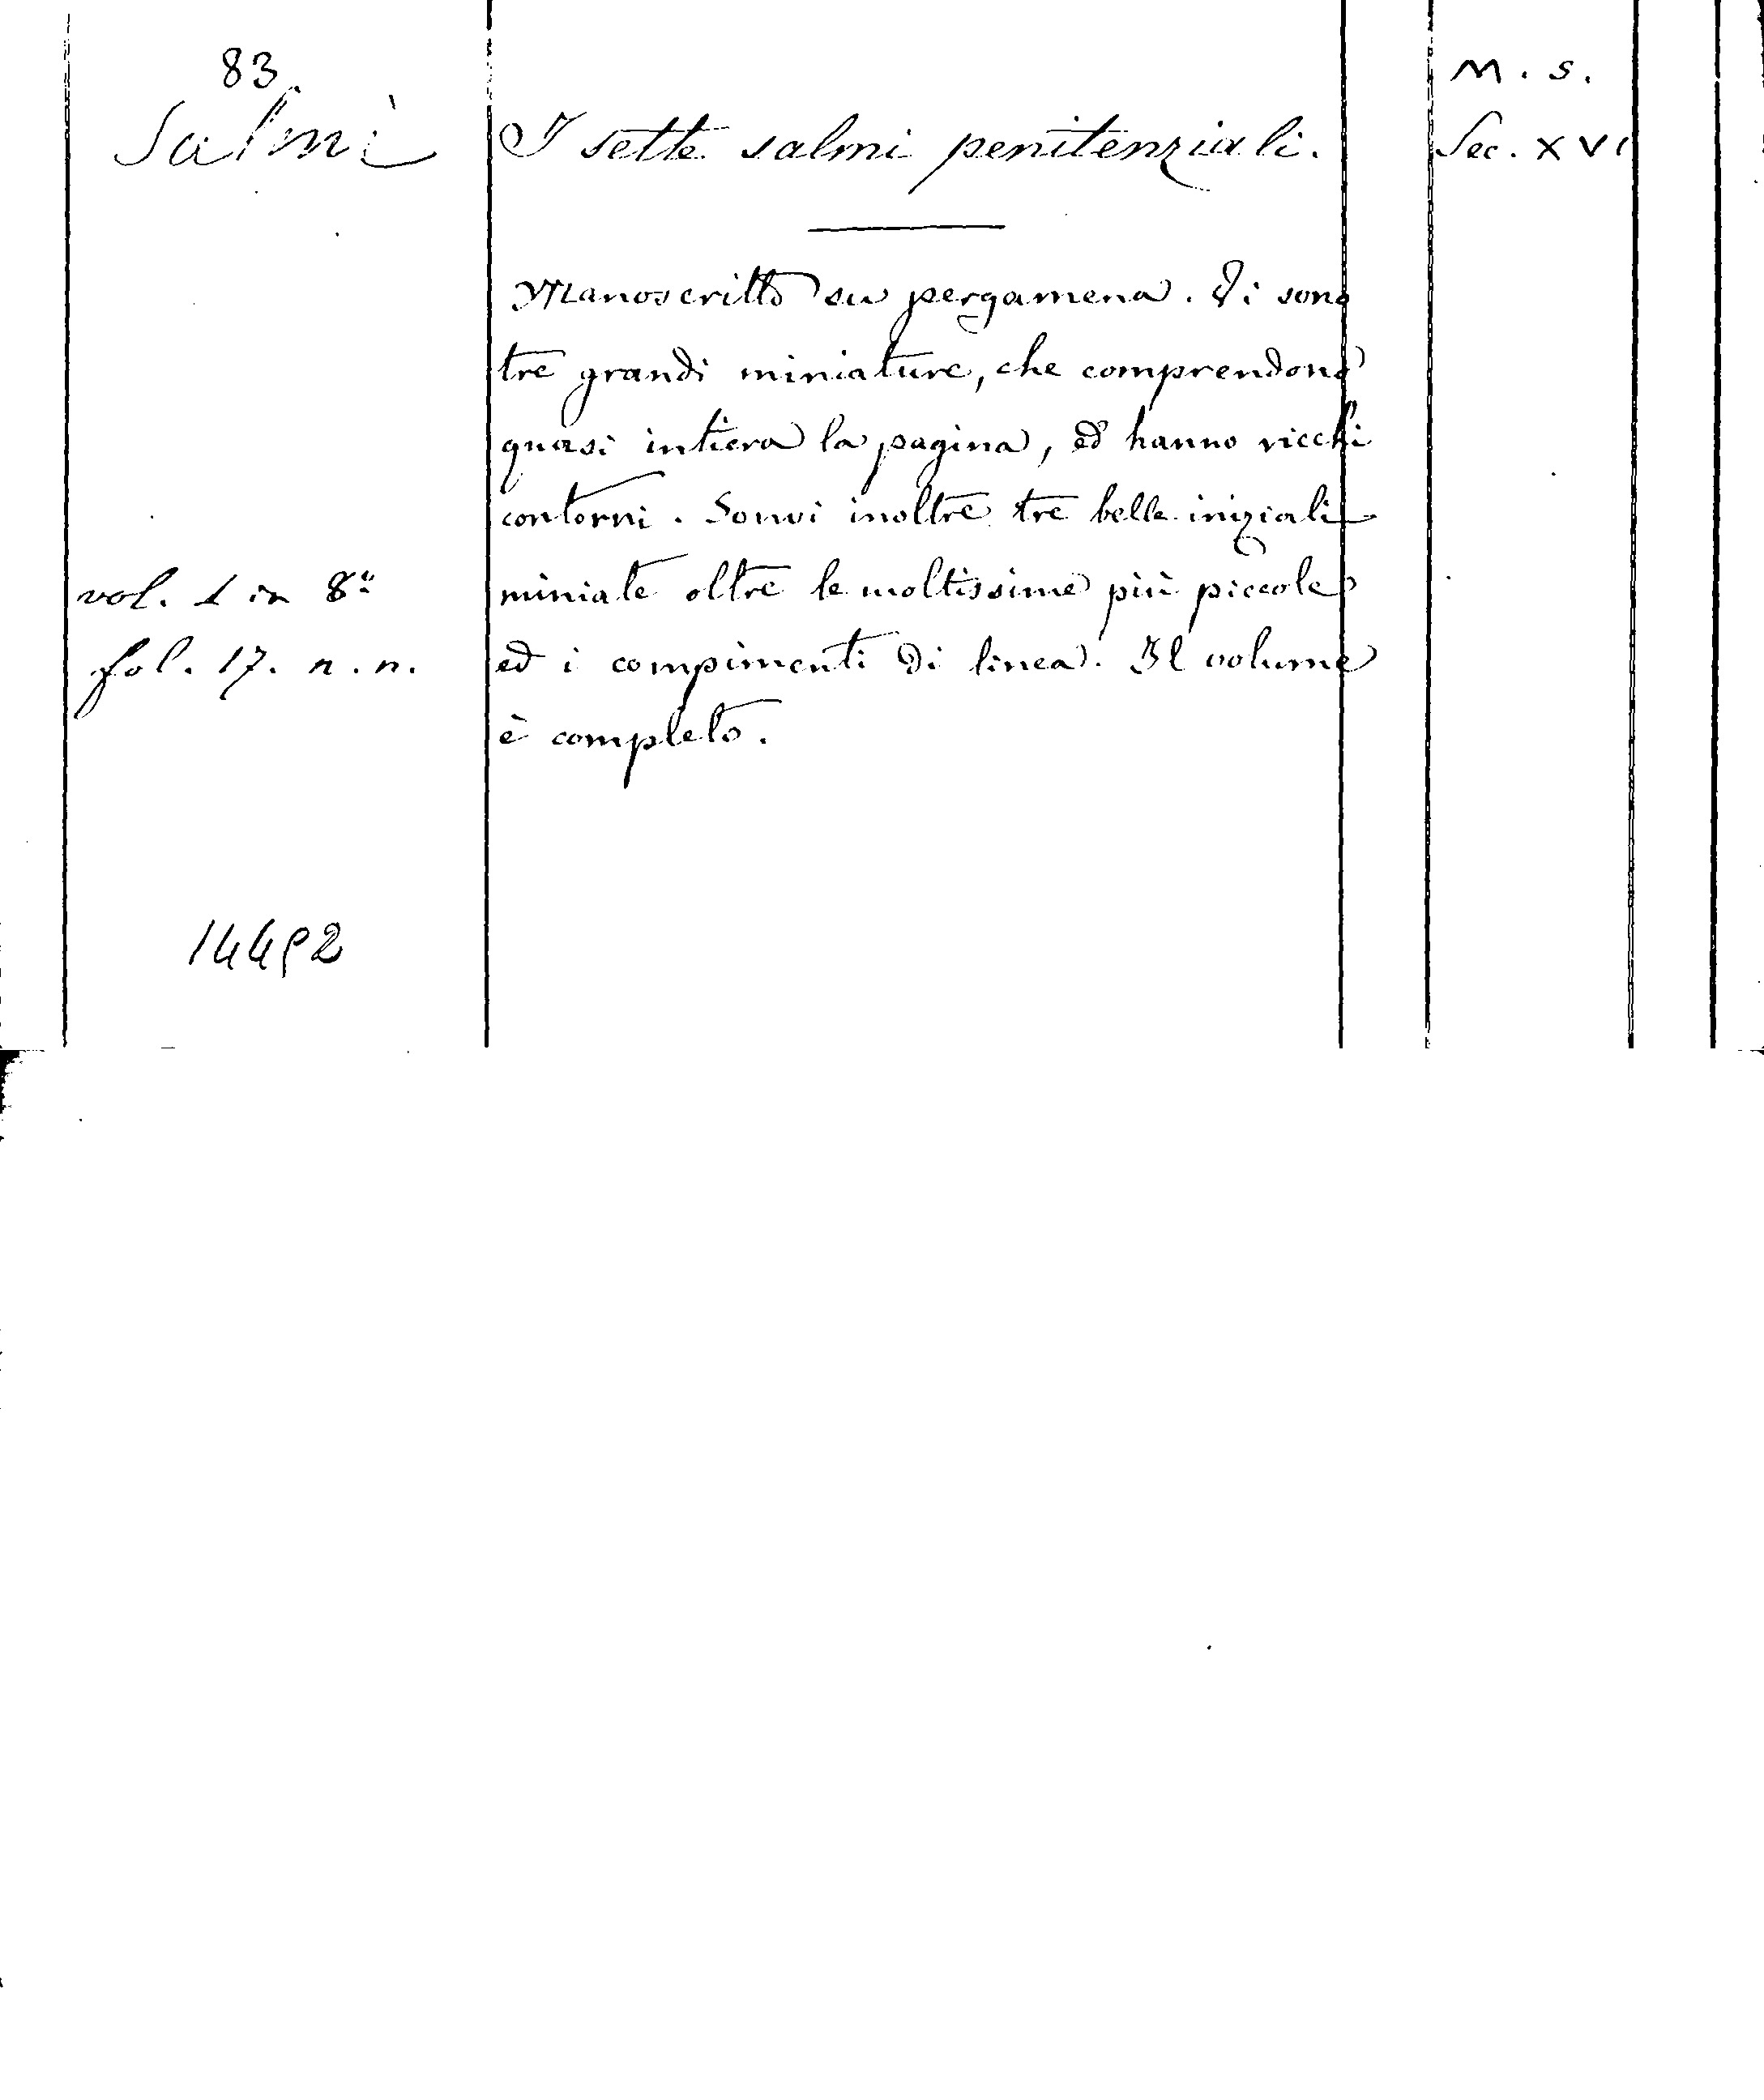 83.
Salmi
I sette salmi penitenziali.
M. S.
Sec. XVI
Manoscritto su pergamena. Vi sono
tre grandi miniature, che comprendono
quasi intiera la pagina, ed hanno ricchi
contorni. Sonvi inoltre tre belle iniziali
miniate oltre le moltissime più piccole
ed i compimenti di linea. Il volume
è completo.
vol. 1 in 8º
fol. 17. n. n.
14492